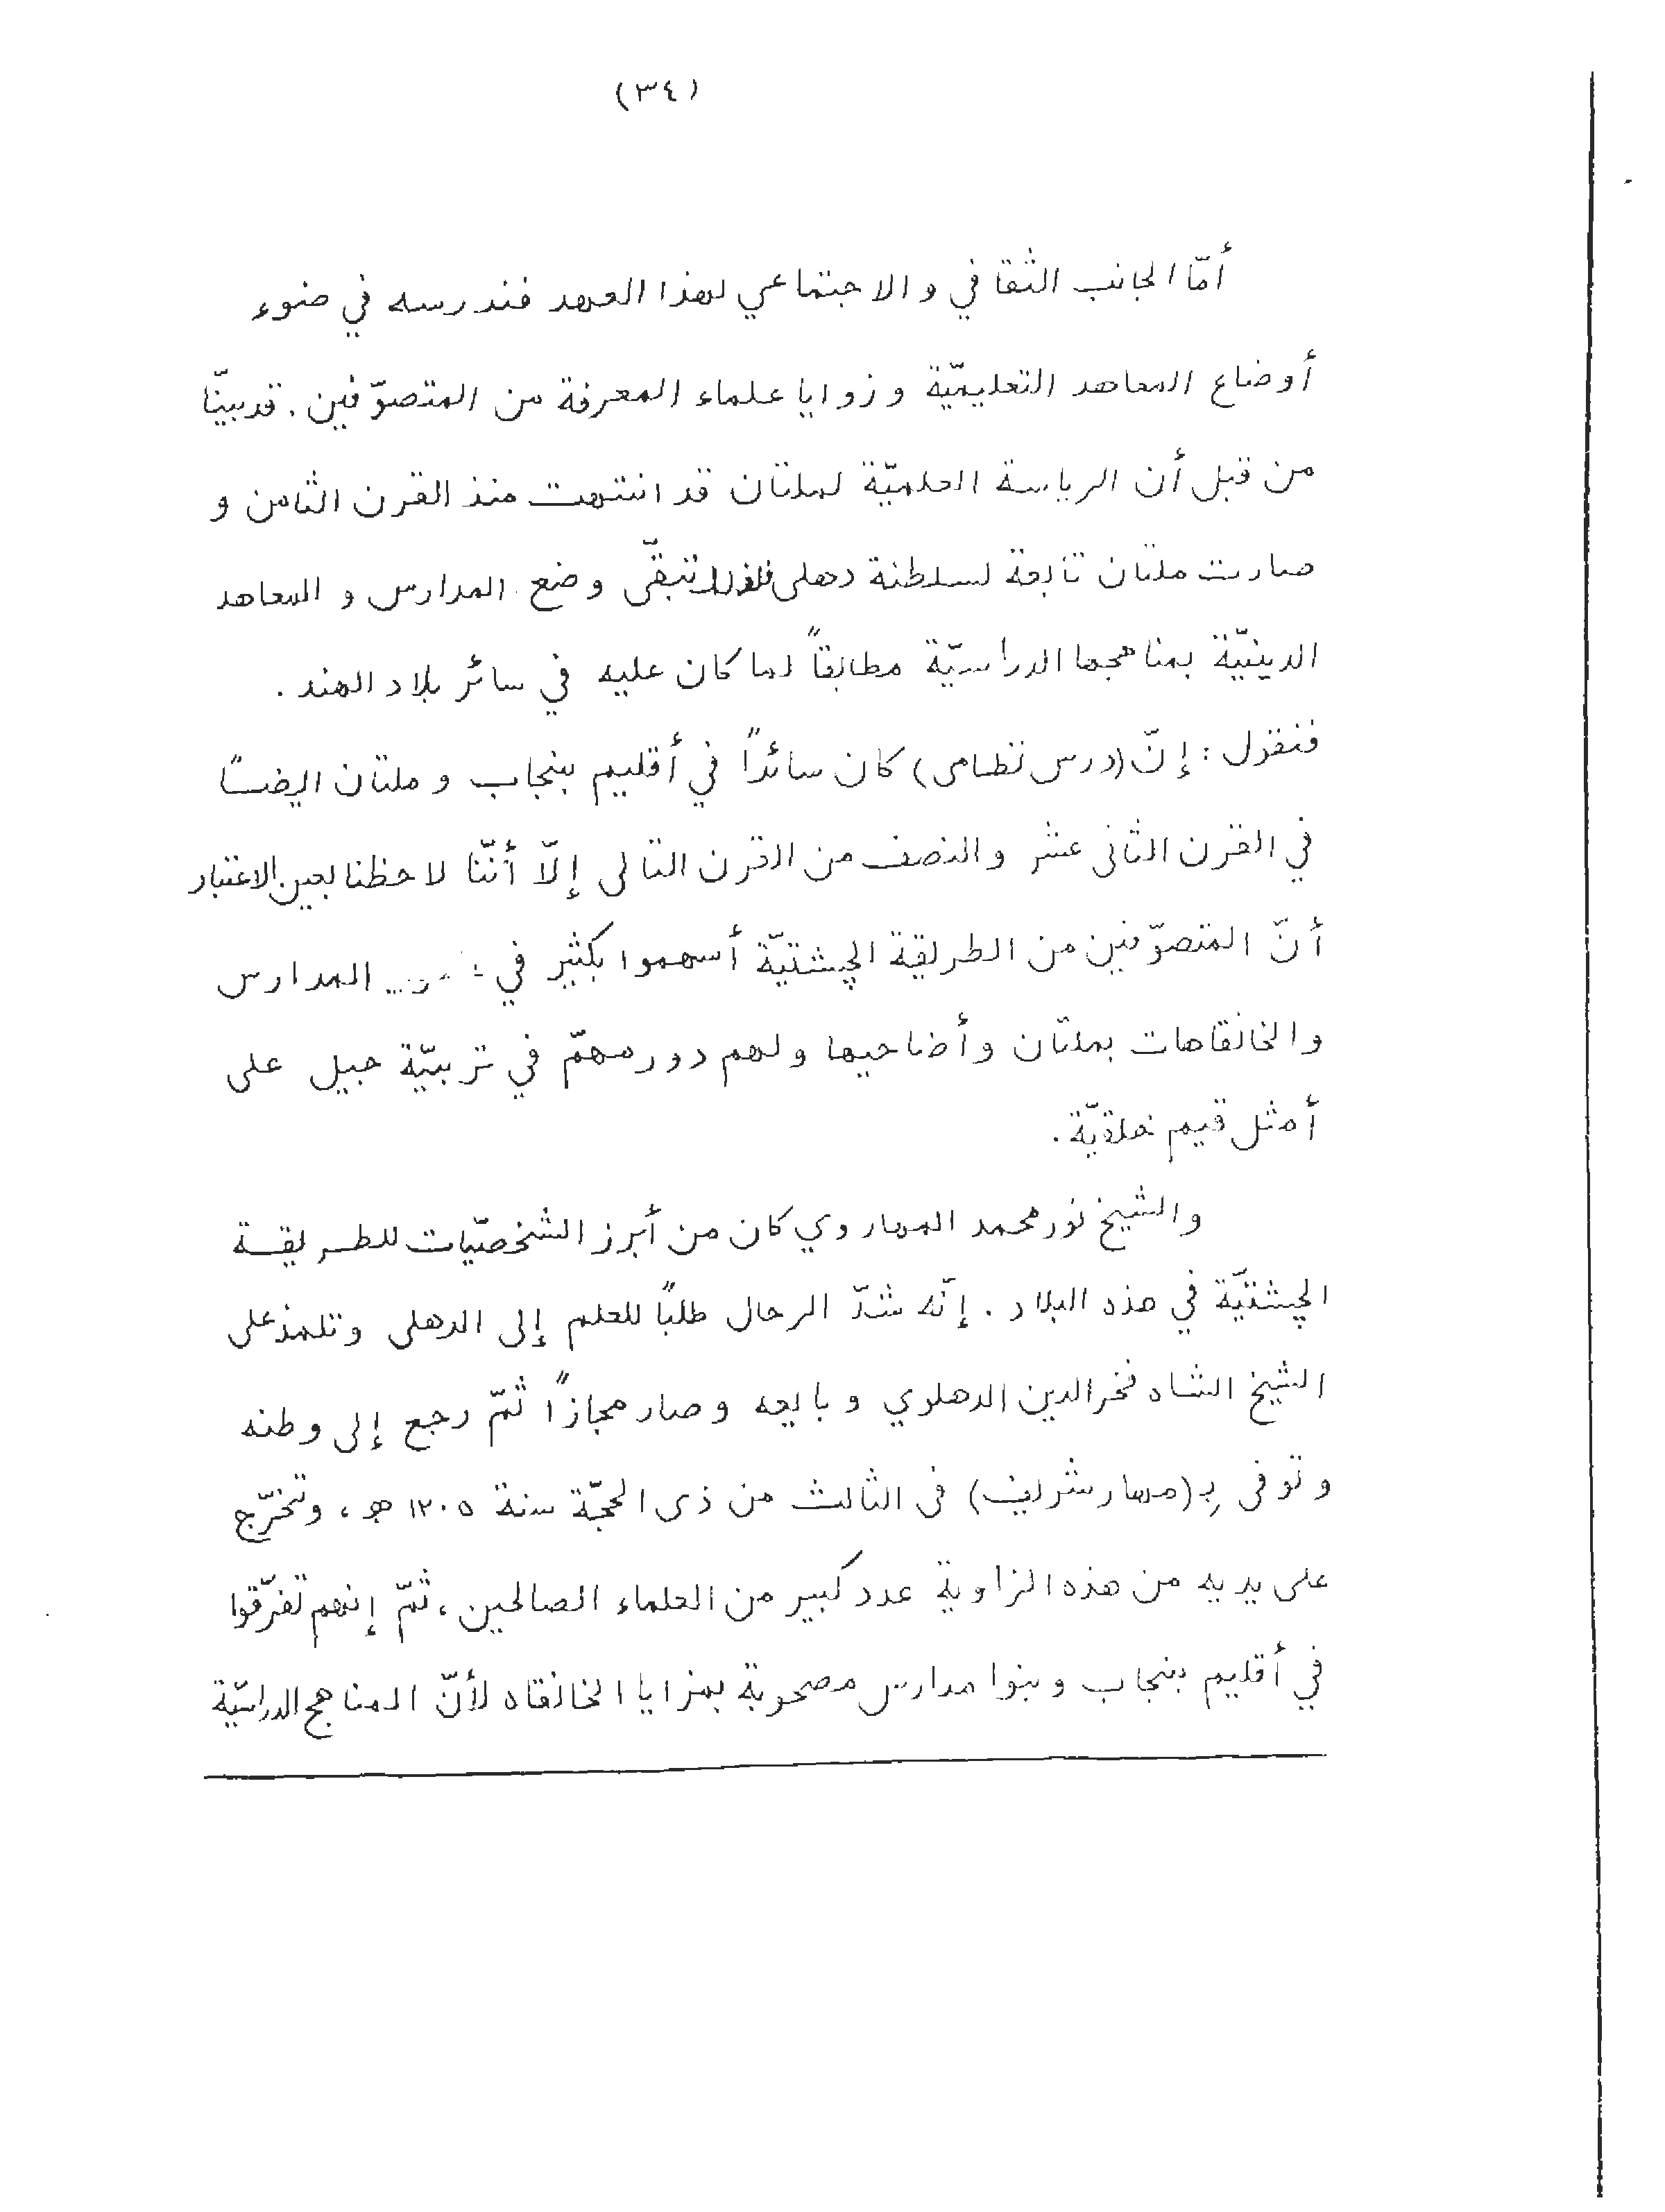 (٣٤)
أمّا الجانب الثقافي والاجتماعي لهذا العهد فندرسه في ضوء
أوضاع المعاهد التعليميّة وزوايا علماء المعرفة من المتصوّفين. قد بينّا
من قبل أن الرياسة العلميّة لملتان قد انتهت منذ القرن الثامن و
صارت ملتان تابعة لسلطنة دهلى تبقّى وضع المدارس و المعاهد
الدينيّة بمناهجها الدراسيّة مطابقاً لما كان عليه في سائر بلاد الهند.
فنقول: إنّ (درس نظامى) كان سائداً في أقليم بنجاب و ملتان ايضاً
في القرن الثانى عشر والنصف من القرن التالى إلّا أنّنا لاحظنا بعين الاعتبار
أنّ المتصوّفين من الطريقة الچشتيّة أسهموا بكثير في المدارس
والخانقاهات بملتان وأضاحيها ولهم دور مهمّ في تربيّة جيل على
أمثل قيم خلقيّة.
والشيخ نور محمد المهاروي كان من أبرز الشخصيّات للطريقة
الچشتيّة في هذه البلاد. إنّه شدّ الرحال طلبًا للعلم إلى الدهلى وتلمذ على
الشيخ الشاه فخرالدين الدهلوي و بايعه وصار مجازاً ثمّ رجع إلى وطنه
وتوفى بِـ(مهار شريف) فى الثالث من ذى الحجّة سنة ١٢٠٥ هـ، وتخرّج
على يديه من هذه الزاوية عدد كبير من العلماء الصالحين، ثمّ إنهم تفرّقوا
في أقليم بنجاب وبنوا مدارس مصحوبة بمزايا الخانقاه لأنّ المناهج الدراسيّة